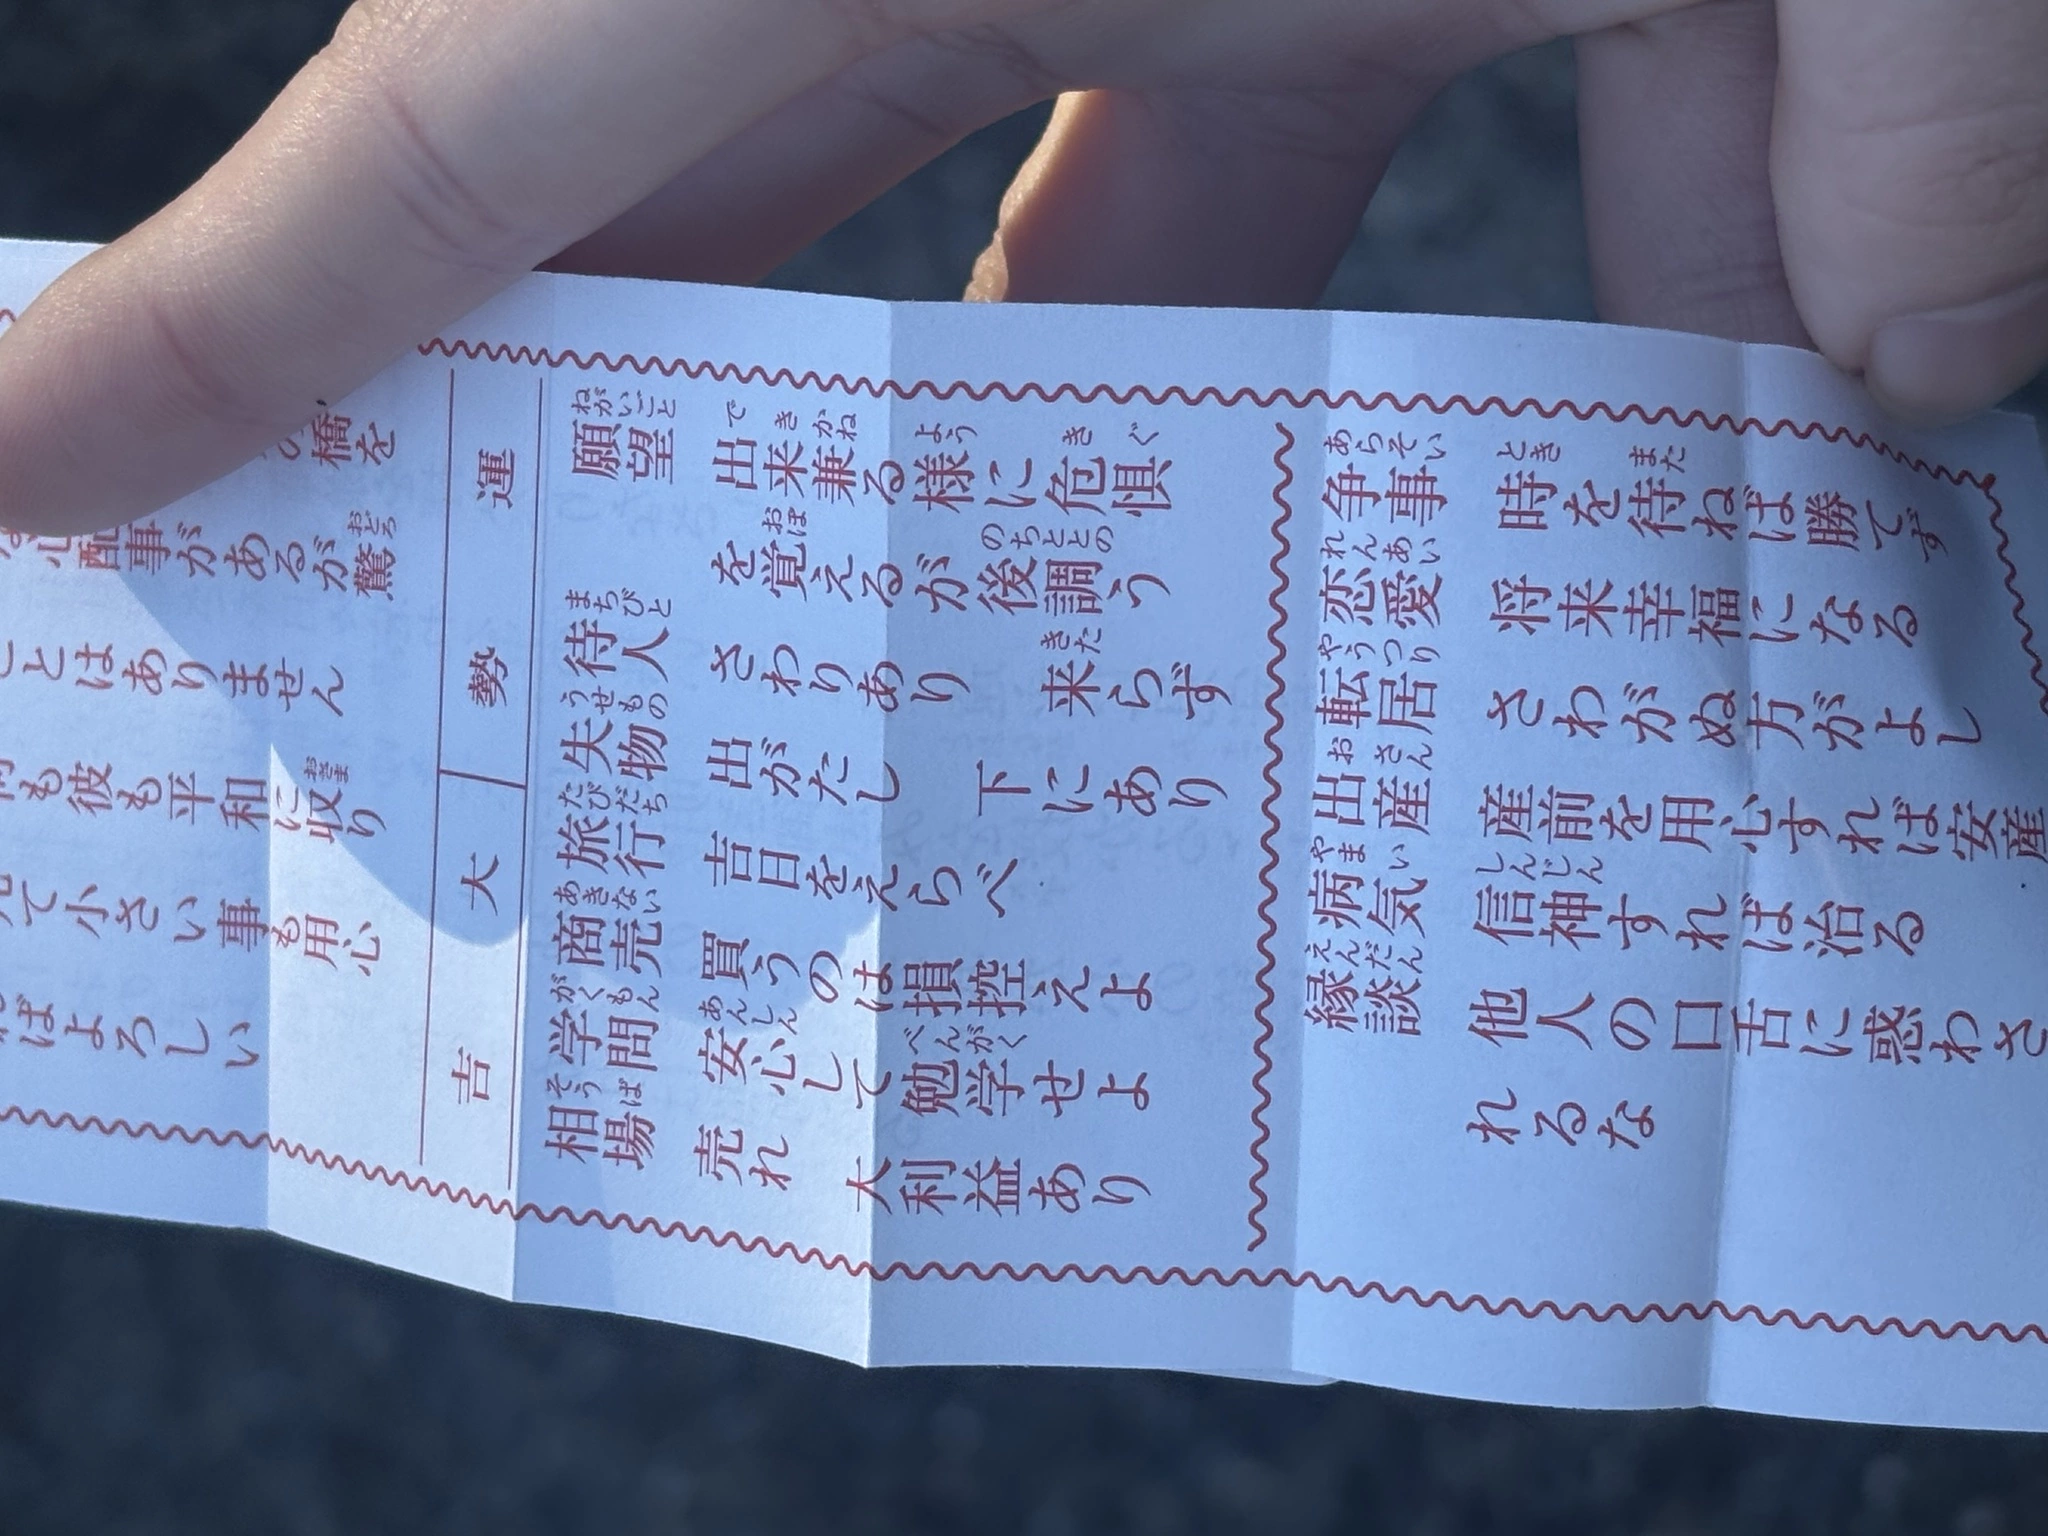 橋を
配事があるが驚
ことはありません
も彼も平和に収り
て小さい事も用心
ばよろしい
運勢 大吉
願望 出来兼る様に危惧
を覚えるが後調う
待人 さわりあり 来らず
失物 出がたし 下にあり
旅行 吉日をえらべ
商売 買うのは損控えよ
学問 安心して勉学せよ
相場 売れ 大利益あり
争事 時を待ねば勝てず
恋愛 将来幸福になる
転居 さわがぬ方がよし
出産 産前を用心すれば安産
病気 信神すれば治る
縁談 他人の口舌に惑わさ
れるな